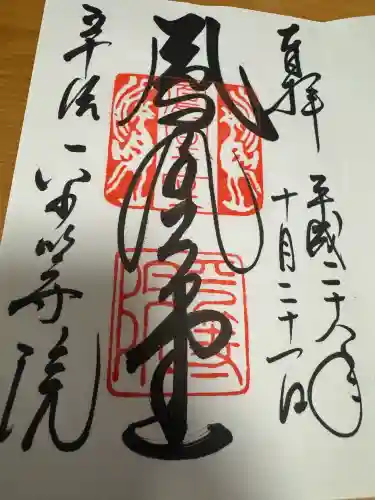 奉拝
平成二十八年
十月二十一日
鳳凰堂
宇治 平等院